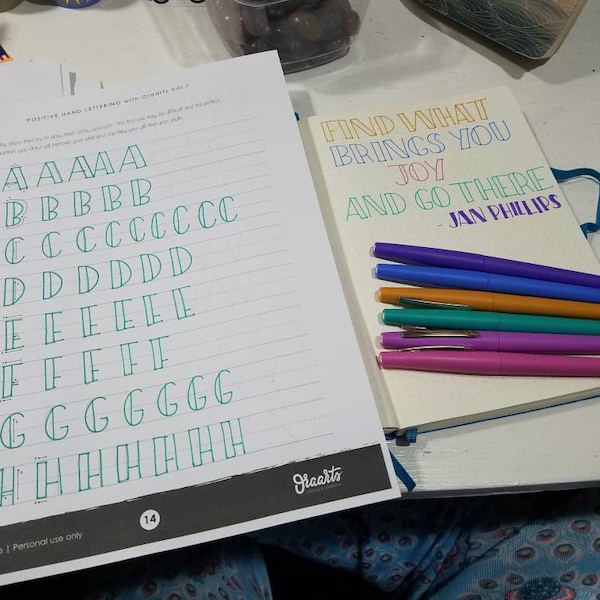 POSITIVE HAND LETTERING with Oraarts Vol.1
A A A A A
B B B B B
C C C C C C C C
D D D D D D
E E E E E E
F F F F F
G G G G G G G
H H H H H H H
Oraarts
14
| Personal use only
FIND WHAT
BRINGS YOU
JOY
AND GO THERE
- JAN PHILLIPS